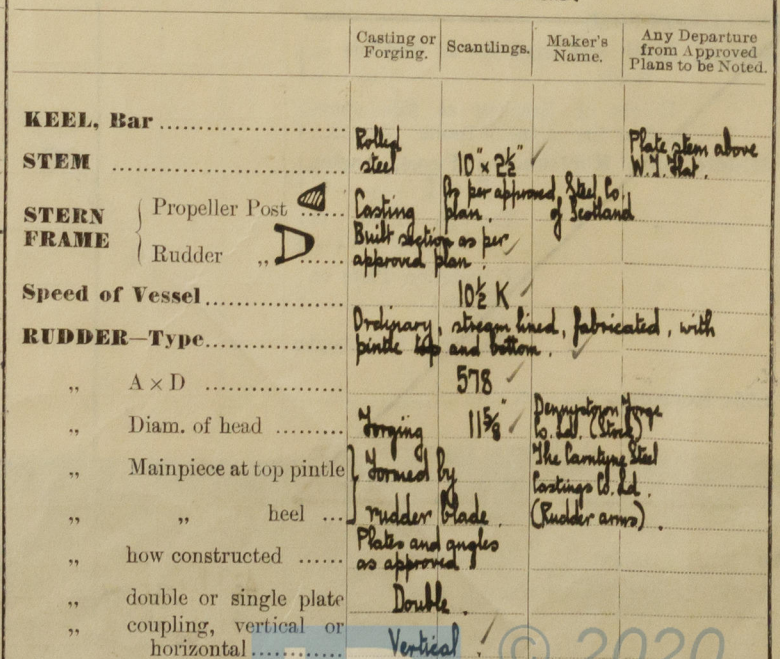 Casting or Forging. Scantlings. Maker's Name. Any Departure from Approved Plans to be Noted.
KEEL, Bar
STEM Rolled steel 10" x 2½" ✓ Plate stem above W.T. flat.
STERN FRAME { Propeller Post Casting As per approved plan. Steel Co. of Scotland
Rudder „ Built section as per approved plan.
Speed of Vessel 10½ K
RUDDER—Type Ordinary, stream lined, fabricated, with pintle top and bottom.
„ A × D 578
„ Diam. of head Forging 11⅝" Dennystown Forge Co. Ld. (Stock)
„ Mainpiece at top pintle } Formed by The Carntyne Steel Castings Co. Ld.
„ „ heel rudder blade. (Rudder arms).
„ how constructed Plates and angles as approved
„ double or single plate Double.
„ coupling, vertical or horizontal Vertical.
© 2020